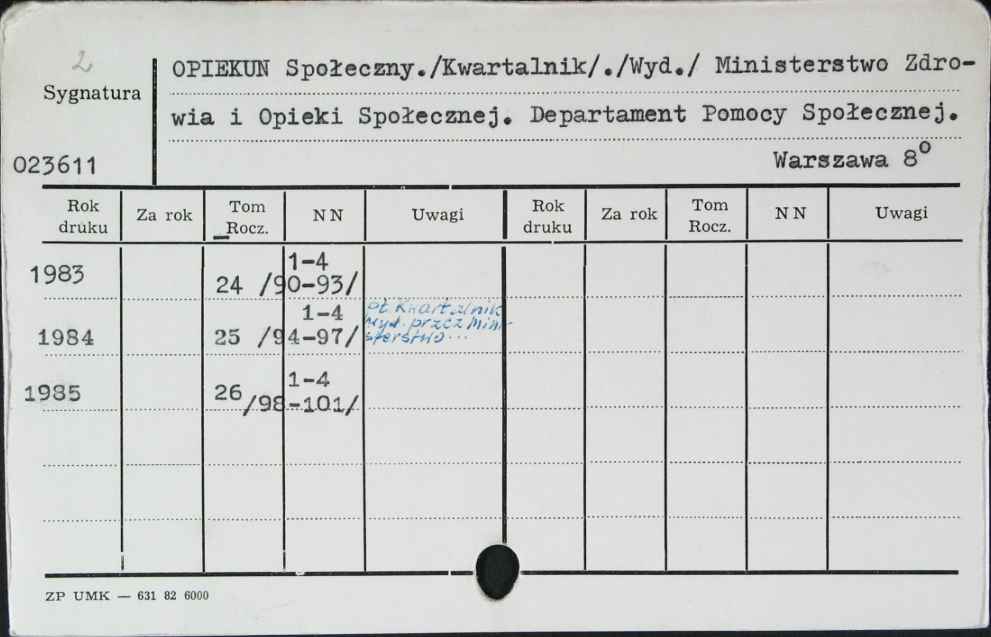 2
Sygnatura
OPIEKUN Społeczny./Kwartalnik/./Wyd./ Ministerstwo Zdro-
wia i Opieki Społecznej. Departament Pomocy Społecznej.
023611
Warszawa 8°
Rok druku Za rok Tom Rocz. NN Uwagi Rok druku Za rok Tom Rocz. NN Uwagi
1983 24 /90-93/ 1-4
1984 25 /94-97/ 1-4
pt. Kwartalnik
Wyd. przez Mini-
sterstwo...
1985 26 /98-101/ 1-4
ZP UMK — 631 82 6000